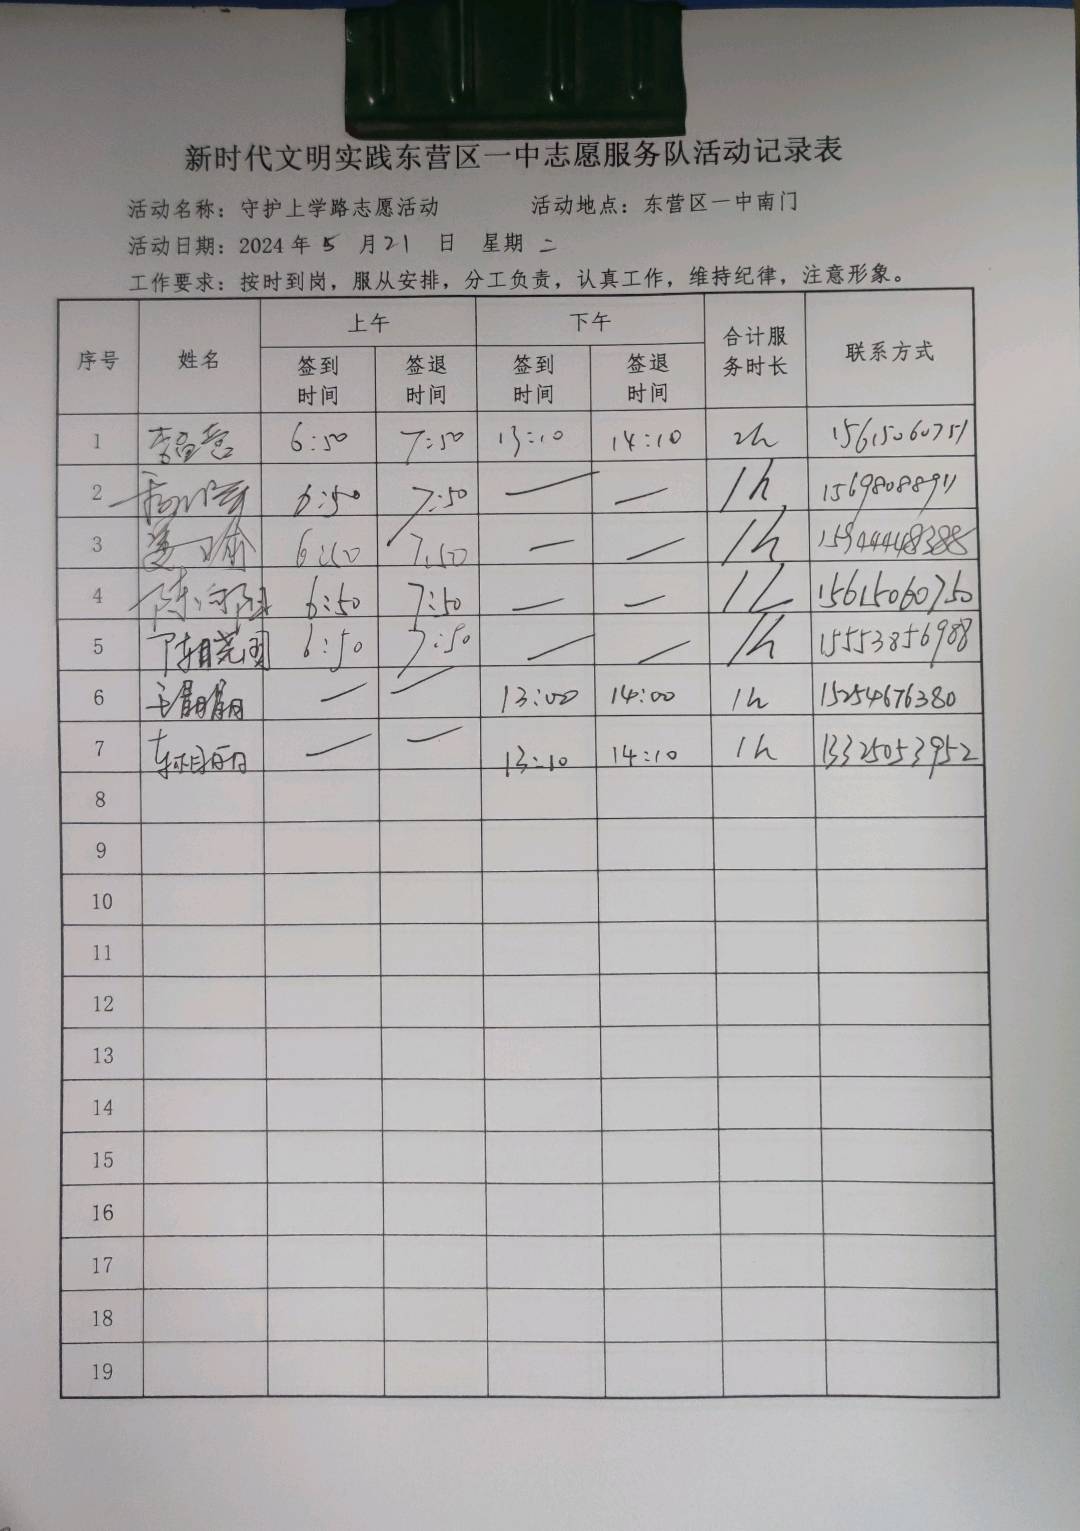 新时代文明实践东营区一中志愿服务队活动记录表
活动名称：守护上学路志愿活动 活动地点：东营区一中南门
活动日期：2024年 5 月 21 日 星期 二
工作要求：按时到岗，服从安排，分工负责，认真工作，维持纪律，注意形象。
序号 姓名 上午 下午 合计服务时长 联系方式
签到时间 签退时间 签到时间 签退时间
1 6:50 7:50 13:10 14:10 2h 15615060751
2 6:50 7:50 — — 1h 15698088911
3 6:50 7:50 — — 1h
4 陈 6:50 7:50 — — 1h 15615060750
5 6:50 7:50 — — 1h 15553856988
6 — — 13:00 14:00 1h 15254676380
7 — — 13:10 14:10 1h 13325053952
8
9
10
11
12
13
14
15
16
17
18
19